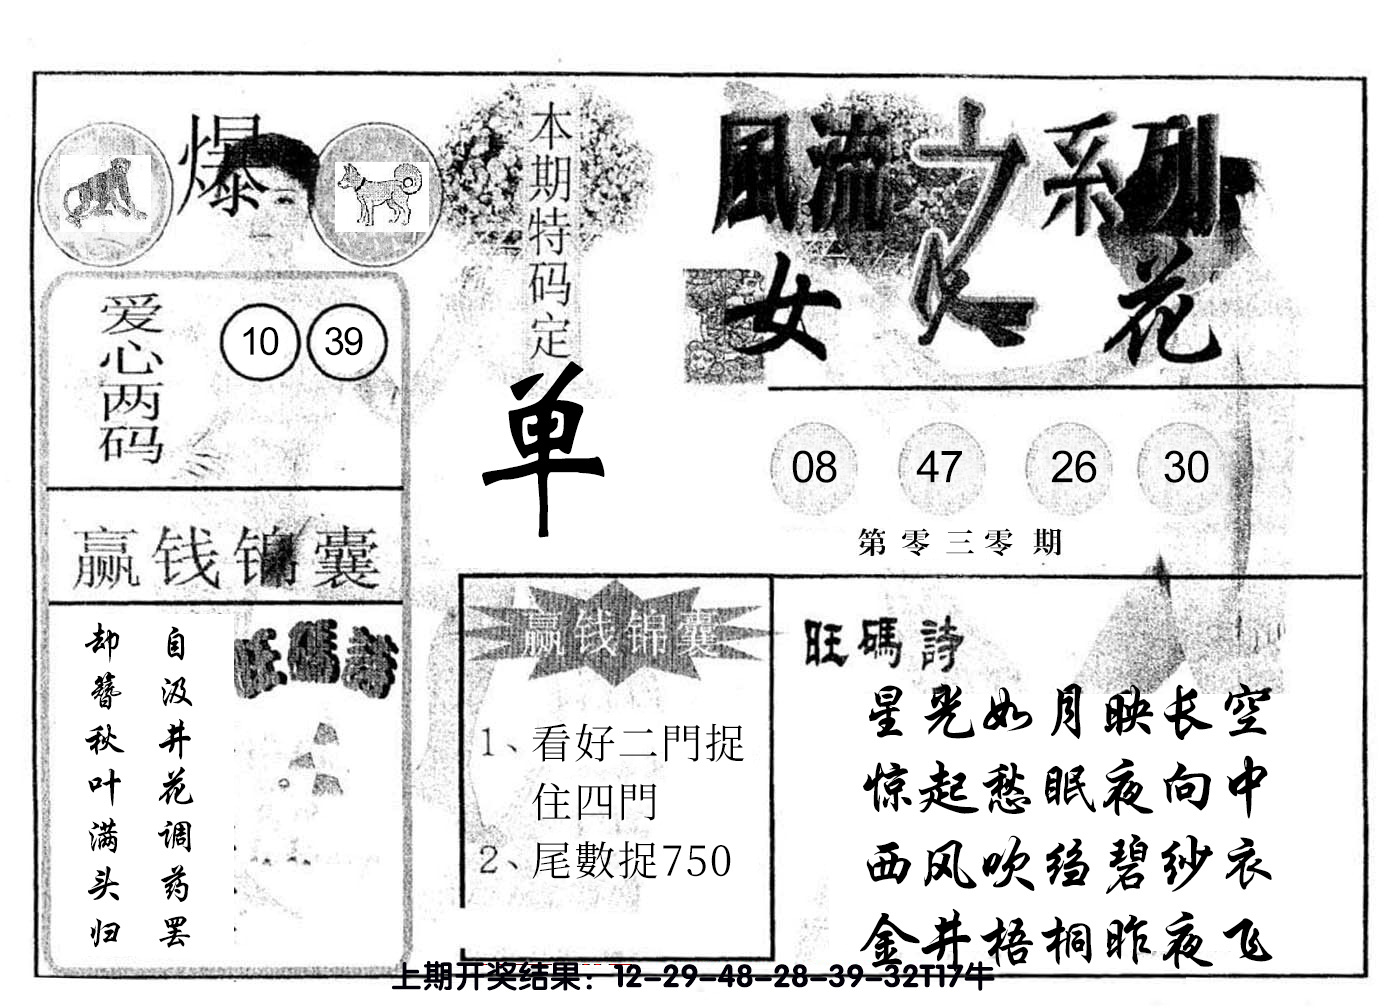 爆
爱心两码
10 39
赢钱锦囊
自汲井花调药罢
却簪秋叶满头归
旺碼詩
本期特码定
单
風流之系列
女人花
08 47 26 30
第零三零期
赢钱锦囊
1、看好二門捉
住四門
2、尾數捉750
旺碼詩
星光如月映长空
惊起愁眠夜向中
西风吹绉碧纱衣
金井梧桐昨夜飞
上期开奖结果：12-29-48-28-39-32T17牛